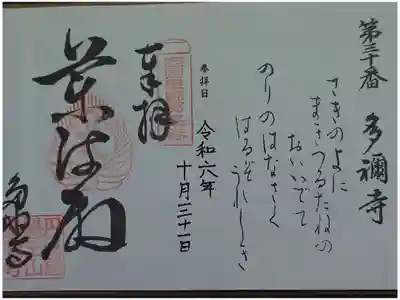 第三十番 多禰寺
さきのよに
まきつるたねの
おいいでて
のりのはなさく
はるぞうれしき
参拝日
令和六年
十月三十一日
奉拝
多禰寺